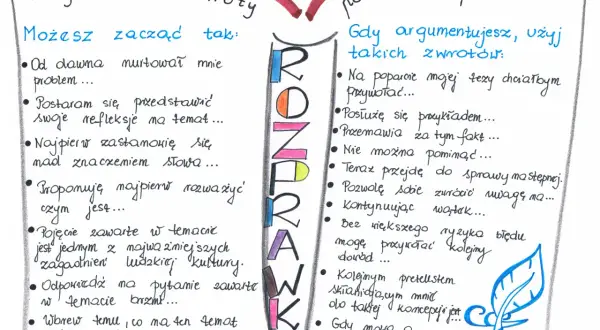 Możesz zacząć tak:
• Od dawna nurtował mnie
problem...
• Postaram się przedstawić
swoje refleksje na temat...
• Najpierw zastanowię się
nad znaczeniem słowa...
• Proponuję najpierw rozważyć
czym jest...
• Pojęcie zawarte w temacie
jest jednym z najważniejszych
zagadnień ludzkiej kultury.
• Odpowiedź na pytanie zawarte
w temacie brzmi...
• Wbrew temu, co na ten temat
ROZPRAWK
Gdy argumentujesz, użyj
takich zwrotów:
• Na poparcie mojej tezy chciałbym
przywołać...
• Posłużę się przykładem...
• Przemawia za tym fakt...
• Nie można pominąć...
• Teraz przejdę do sprawy następnej.
• Pozwolę sobie zwrócić uwagę na...
• Kontynuując wątek...
• Bez większego ryzyka błędu
mogę przywołać kolejny
dowód...
• Kolejnym pretekstem
skłaniającym mnie
do takiej koncepcji jest
• Gdy mowa o